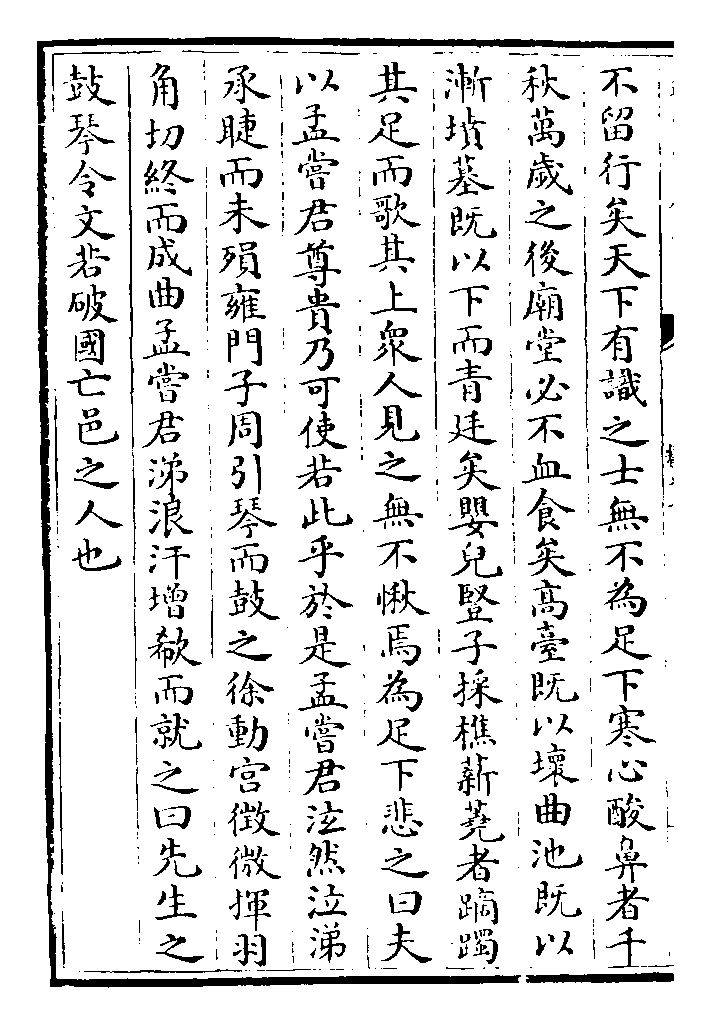 不留行矣天下有識之士無不為足下寒心酸鼻者千
秋萬歲之後廟堂必不血食矣髙臺既以壞曲池既以
漸墳墓既以下而青廷矣嬰兒豎子採樵薪蕘者蹢躅
其足而歌其上衆人見之無不愀焉為足下悲之曰夫
以孟嘗君尊貴乃可使若此乎於是孟嘗君泫然泣涕
承睫而未殞雍門子周引琴而鼓之徐動宫徴微揮羽
角切終而成曲孟嘗君涕浪汗增欷而就之曰先生之
鼓琴令文若破國亡邑之人也